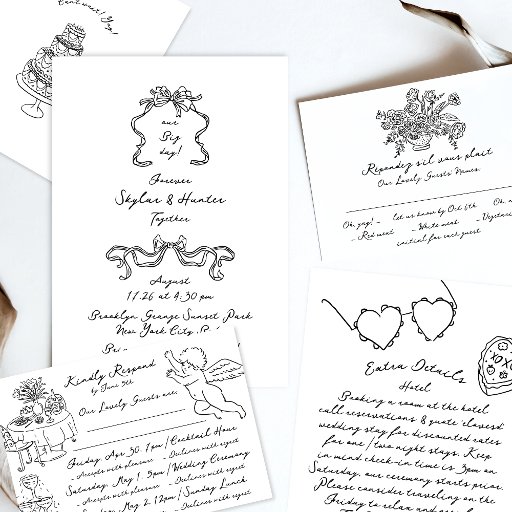 Can't wait! Yay!
our
Big
day!
Forever
Skylar & Hunter
Together
August
17.26 at 4:30 pm
Brooklyn Grange Sunset Park
New York City,
Repondez s'il vous plait
Our Lovely Guests' Names,
Oh, yay! - let us know by Oct 6th
- Red meat - White meat - Vegetaria
initial for each guest
Kindly Respond
by June 9th
Our Lovely Guests are:
Friday Apr 30, 7pm/Cocktail Hour
- Accepts with pleasure - Declines with regret
Saturday, May 1, 3pm/Wedding Ceremony
- Accepts with pleasure - Declines with regret
Sunday May 2, 12pm/Sunday Lunch
- Accepts with pleasure - Declines with regret
Extra Details
Hotel
Booking a room at the hotel
call reservations & quote 'loveasd
wedding stay for discounted rates
for one/two night stays. Keep
in mind check-in time is 3pm on
Saturday, our ceremony starts prior.
Please consider travelling on the
Friday to relax and
XOXO